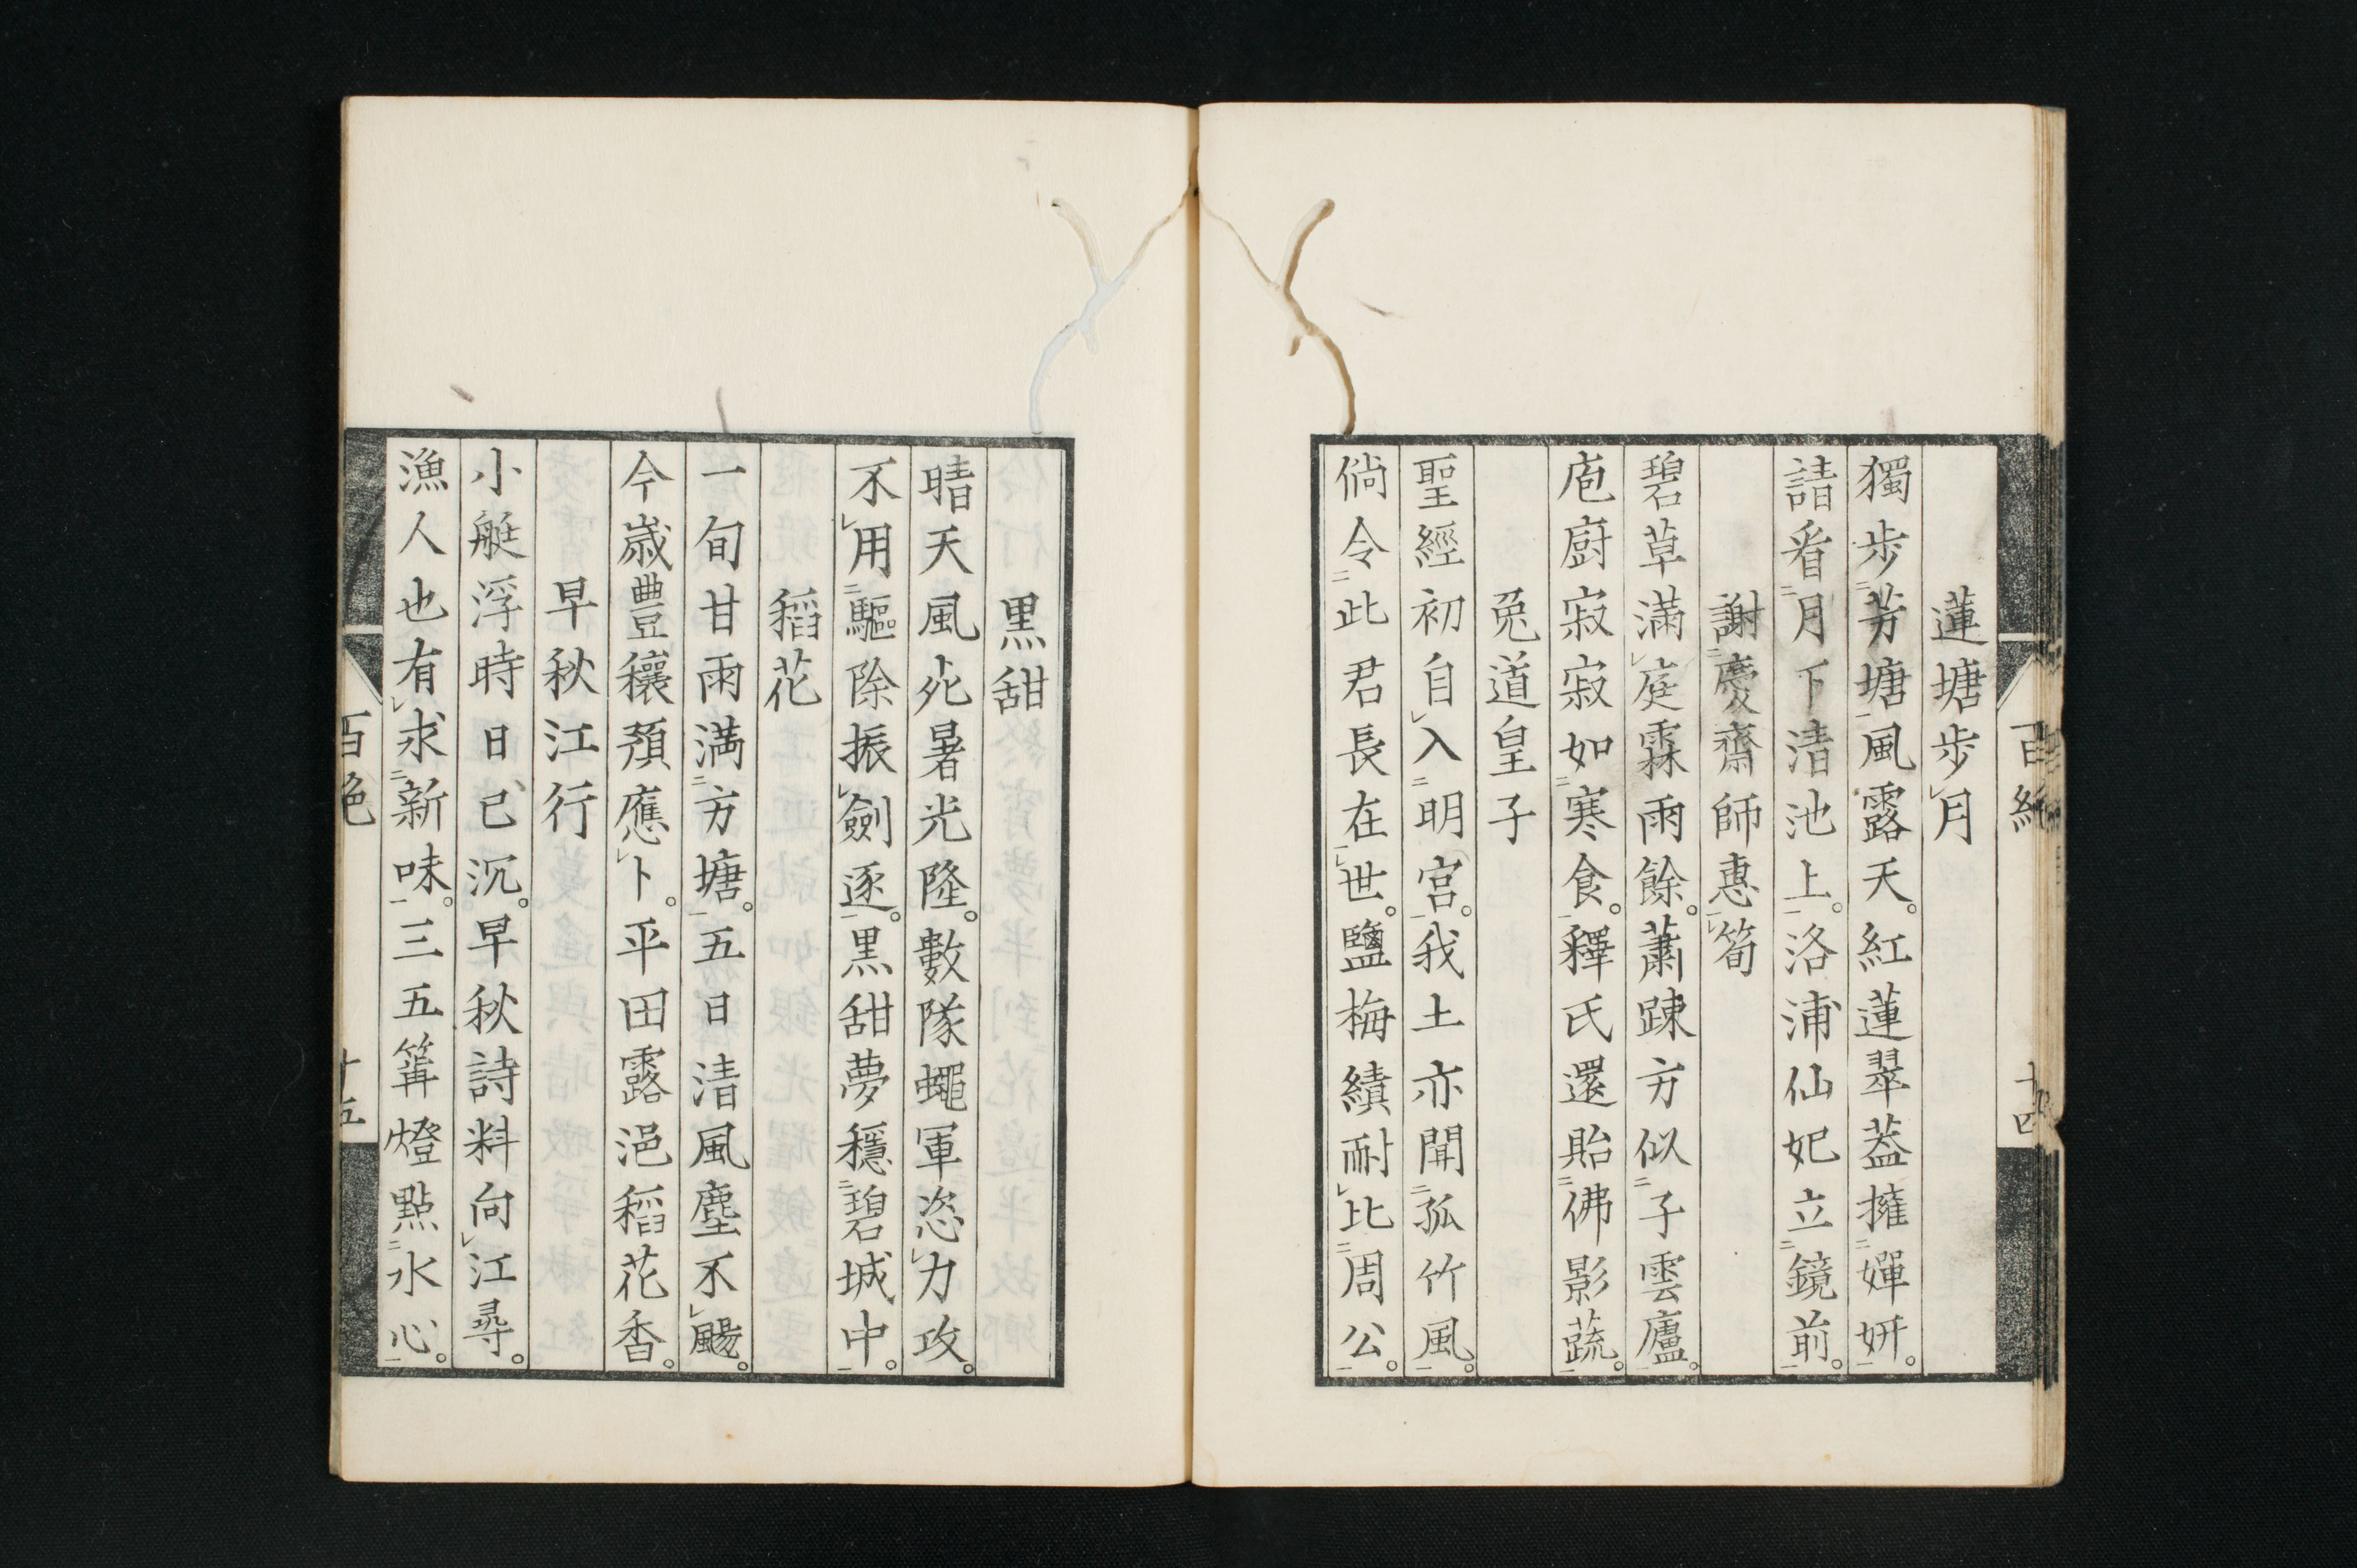 蓮塘步月
獨步芳塘風露天。紅蓮翠葢擁嬋妍。
請看月下清池上。洛浦仙妃立鏡前。
謝慶齋師惠筍
碧草滿庭霖雨餘。蕭踈方似子雲廬。
庖廚寂寂如寒食。釋氏還貽佛影蔬。
兎道皇子
聖經初自入明宮。我土亦聞孤竹風。
倘令此君長在世。鹽梅績耐比周公。
百絕
十四
黒甜
晴天風死暑光隆。數隊蠅軍恣力攻。
不用驅除振劍逐。黒甜夢穩碧城中。
稻花
一旬甘雨満方塘。五日清風塵不颺。
今歲豊穰預應卜。平田露浥稻花香。
早秋江行
小艇浮時日已沉。早秋詩料向江尋。
漁人也有求新味。三五篝燈點水心。
百絕
十五